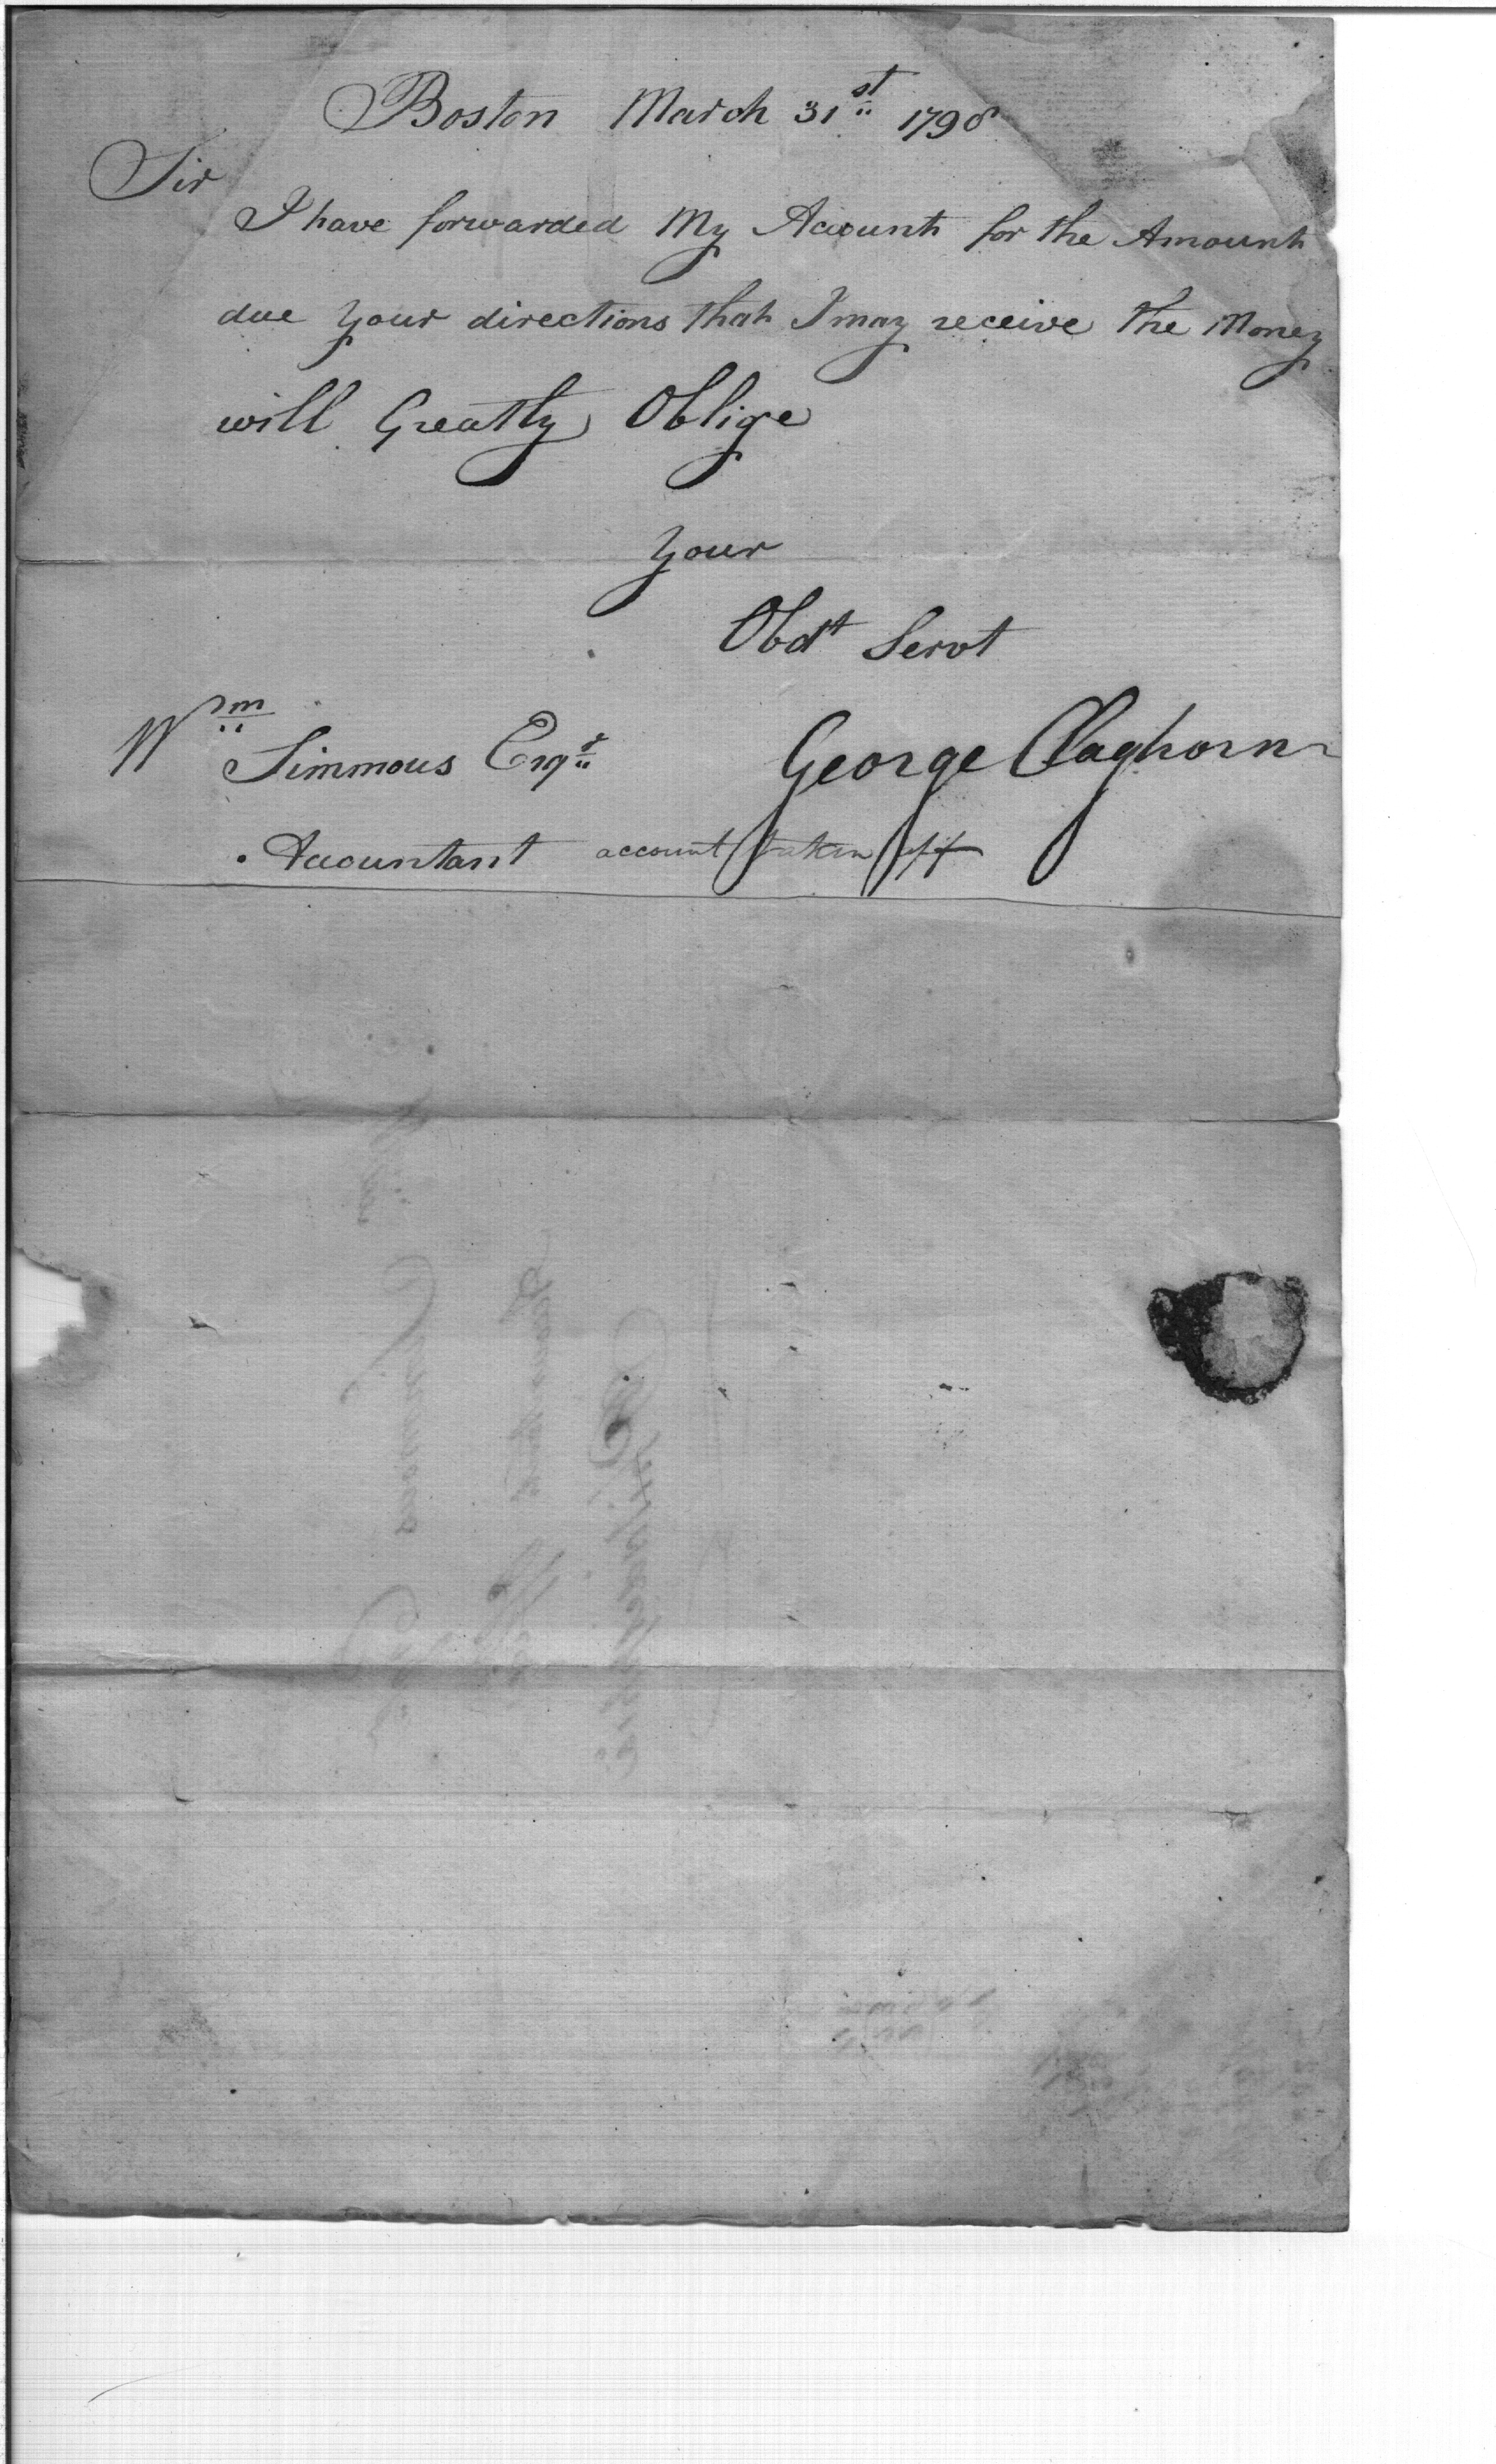 Boston March 31st 1798
Sir
I have forwarded My Acount for the Amount
due your directions that I may receive the Money
will Greatly Oblige
your
Obdt Servt
Wm Simmons Esqr George Claghorn
Acountant account taken off